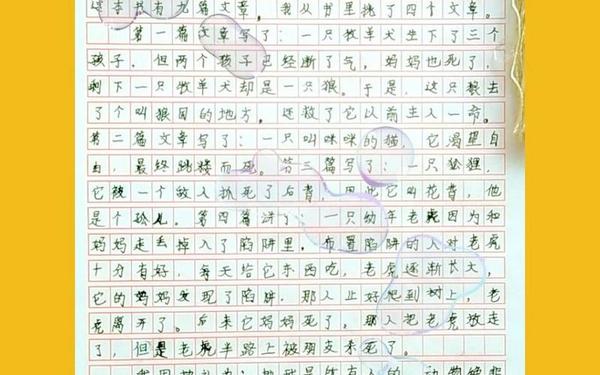 这本书有九篇文章。我从书里挑了四个文章。
第一篇文章写了：一只牧羊犬生下了三个
孩子，但两个孩子已经断了气，妈妈也死了，
剩下一只牧羊犬却是一只狼。于是，这只狼去
了个叫狼园的地方。还救了它以前主人一命。
第二篇文章写了：一只叫咪咪的猫，它渴望自
由，最终跳楼而死。第三篇写了：一只狐狸，
它被一个敌人抓死了后背，因此它叫花背，他
是个孤儿。第四篇讲了：一只幼年老虎因为和
妈妈走丢掉入了陷阱里。布置陷阱的人对老虎
十分有好，每天给它东西吃，老虎逐渐长大，
它的妈妈发现了陷阱，那人正好爬到树上，老
虎离开了。后来它妈妈死了。那人把老虎放走
了，但是老虎半路上被朋友杀死了。
我因
动物